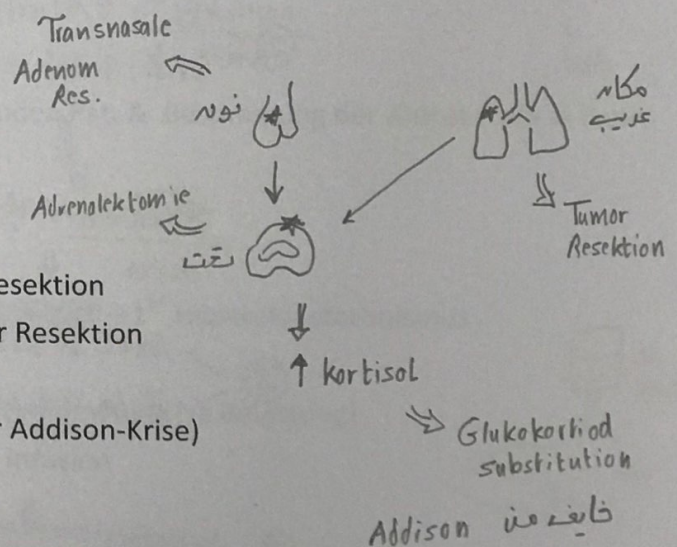 Transnasale
Adenom
Res.
فوق
مكان
غريب
Adrenalektomie
تحت
Tumor
Resektion
esektion
r Resektion
↑ Kortisol
r Addison-Krise)
Glukokortiod
substitution
خايف من Addison